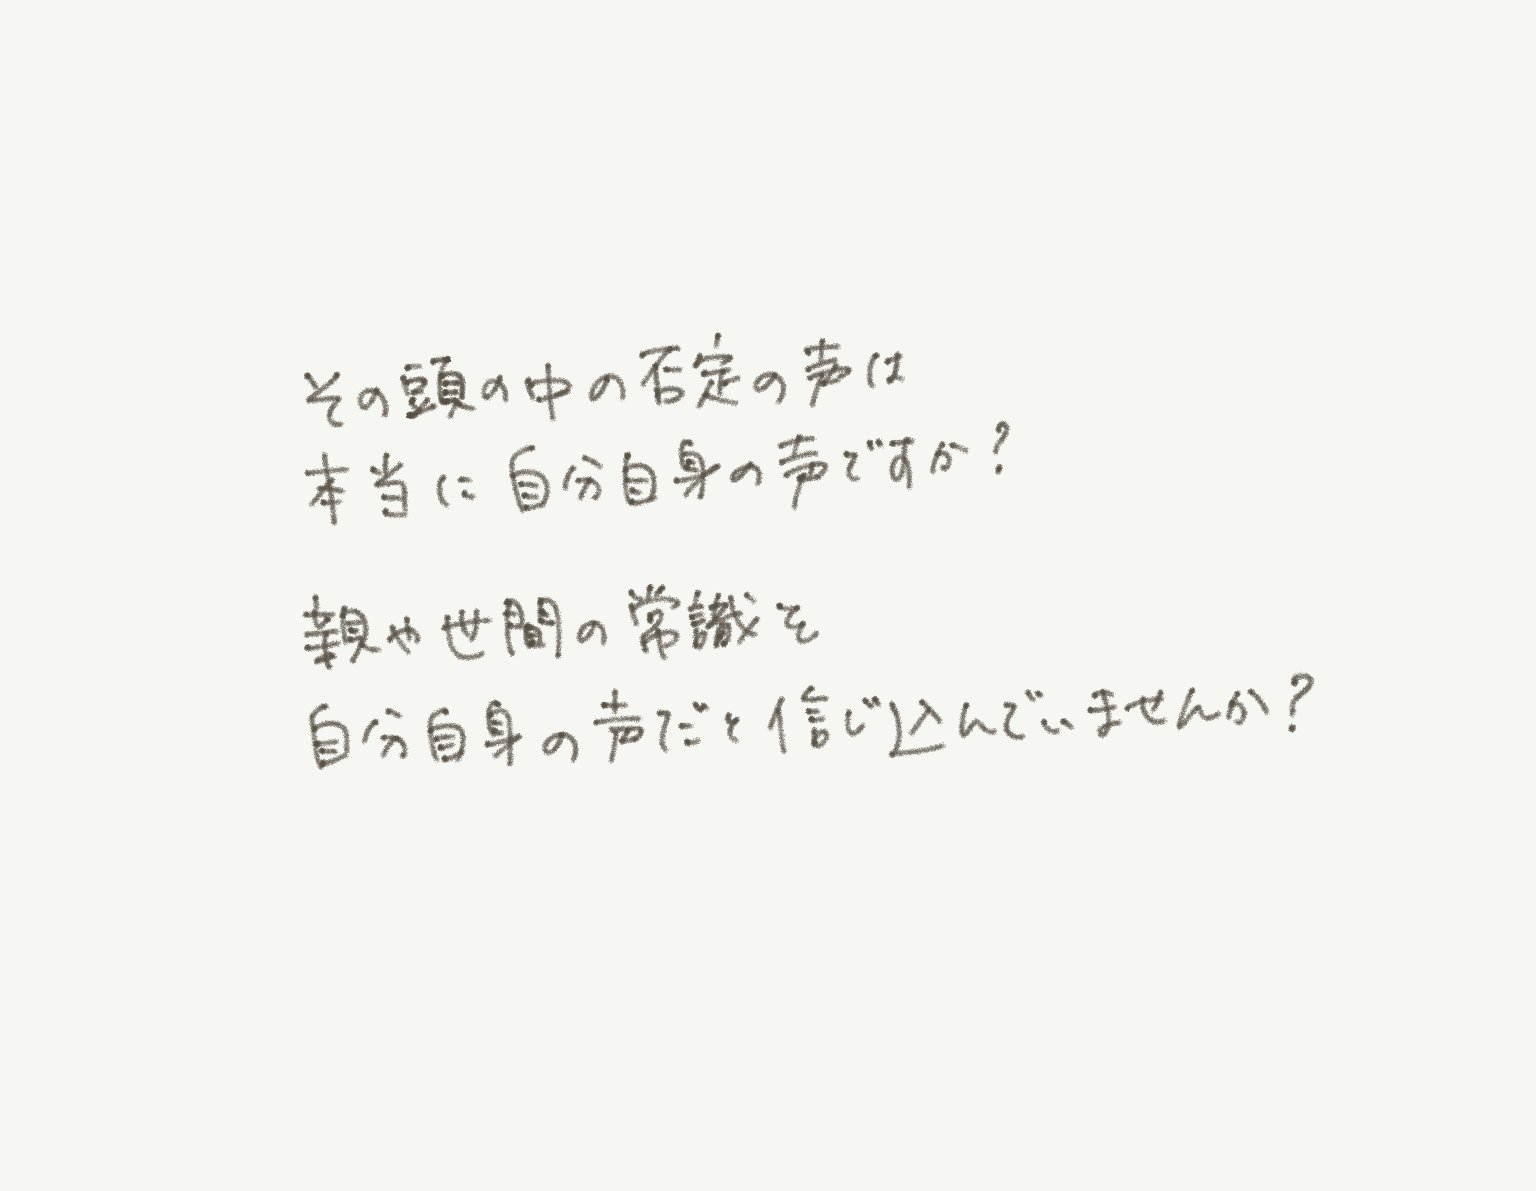 その頭の中の否定の声は
本当に自分自身の声ですか?
親や世間の常識を
自分自身の声だと信じ込んでいませんか?